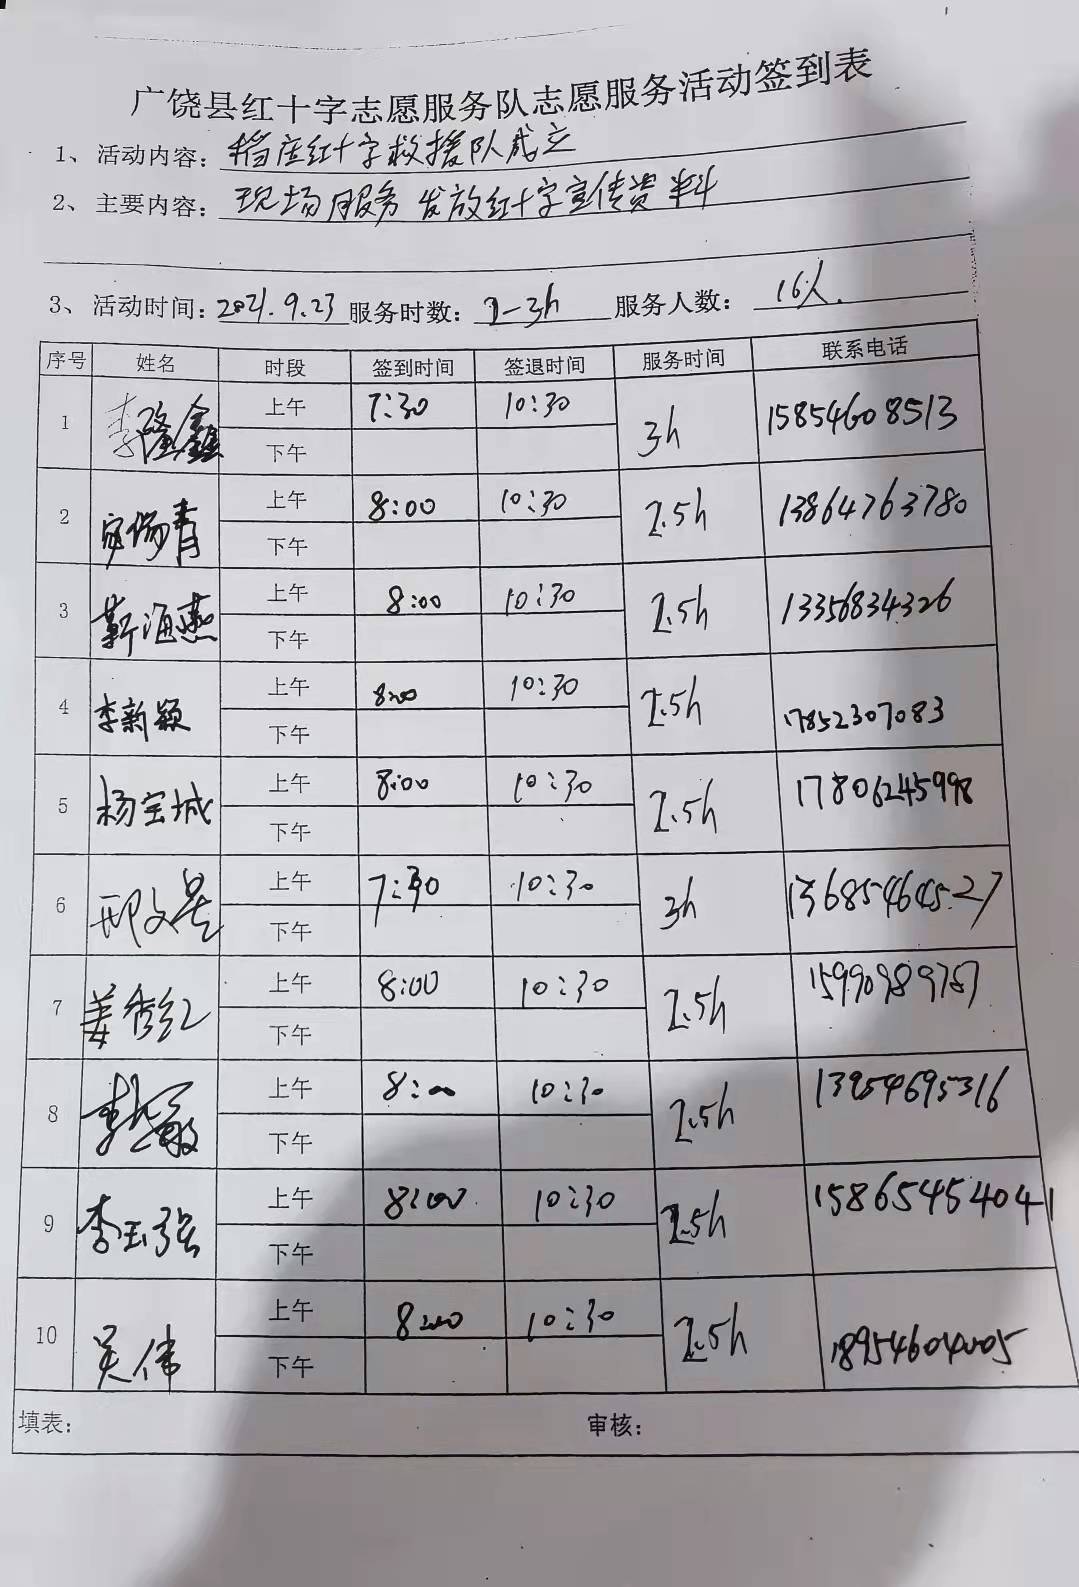 广饶县红十字志愿服务队志愿服务活动签到表
1、活动内容：稻庄红十字救援队成立
2、主要内容：现场服务 发放红十字宣传资料
3、活动时间：2021.9.23 服务时数：2-3h 服务人数：16人.
序号 姓名 时段 签到时间 签退时间 服务时间 联系电话
1 李隆鑫 上午 7:30 10:30 3h 15854608513
下午
2 上午 8:00 10:30 2.5h 13864763780
下午
3 靳海燕 上午 8:00 10:30 2.5h 13356834326
下午
4 李新颖 上午 8:00 10:30 2.5h 17852307083
下午
5 杨宝城 上午 8:00 10:30 2.5h 17806245998
下午
6 邢文 上午 7:30 10:30 3h 13685464527
下午
7 姜秀红 上午 8:00 10:30 2.5h
下午
8 上午 8:00 10:30 2.5h 13954695316
下午
9 李玉强 上午 8:00 10:30 2.5h 15865454041
下午
10 吴伟 上午 8:00 10:30 2.5h 18954604005
下午
填表： 审核：